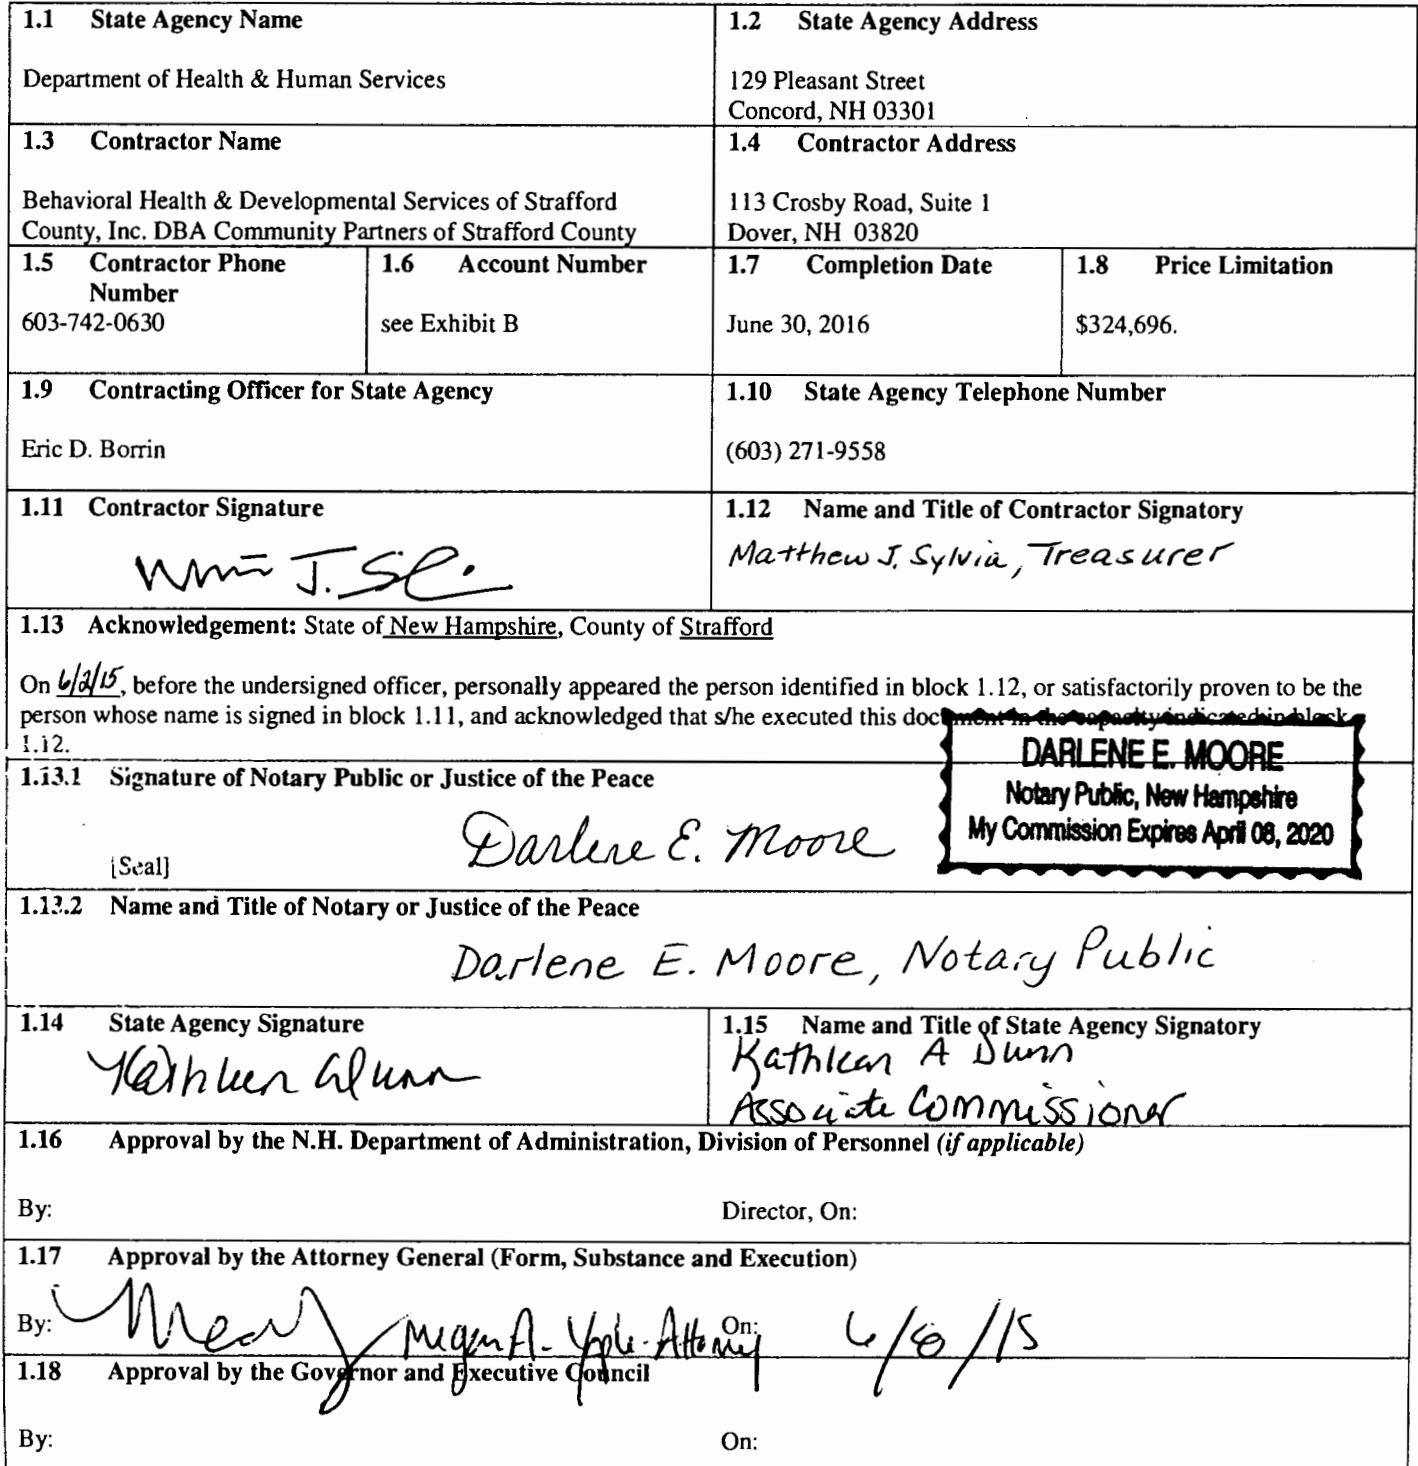 1.1 State Agency Name
Department of Health & Human Services
1.2 State Agency Address
129 Pleasant Street
Concord, NH 03301
1.3 Contractor Name
Behavioral Health & Developmental Services of Strafford
County, Inc. DBA Community Partners of Strafford County
1.4 Contractor Address
113 Crosby Road, Suite 1
Dover, NH 03820
1.5 Contractor Phone
Number
603-742-0630
1.6 Account Number
see Exhibit B
1.7 Completion Date
June 30, 2016
1.8 Price Limitation
$324,696.
1.9 Contracting Officer for State Agency
Eric D. Borrin
1.10 State Agency Telephone Number
(603) 271-9558
1.11 Contractor Signature
1.12 Name and Title of Contractor Signatory
Matthew J. Sylvia, Treasurer
1.13 Acknowledgement: State of New Hampshire, County of Strafford
On 6/2/15, before the undersigned officer, personally appeared the person identified in block 1.12, or satisfactorily proven to be the
person whose name is signed in block 1.11, and acknowledged that s/he executed this document in the capacity indicated in block
1.12.
DARLENE E. MOORE
Notary Public, New Hampshire
My Commission Expires April 08, 2020
1.13.1 Signature of Notary Public or Justice of the Peace
Darlene E. Moore
[Seal]
1.13.2 Name and Title of Notary or Justice of the Peace
Darlene E. Moore, Notary Public
1.14 State Agency Signature
Kathleen A Dunn
1.15 Name and Title of State Agency Signatory
Kathleen A Dunn
Associate Commissioner
1.16 Approval by the N.H. Department of Administration, Division of Personnel (if applicable)
By:
Director, On:
1.17 Approval by the Attorney General (Form, Substance and Execution)
By: Megan A. Yaple - Attorney
On: 6/8/15
1.18 Approval by the Governor and Executive Council
By:
On: